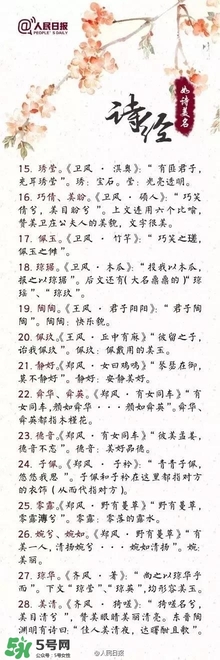 @人民日报
PEOPLE'S DAILY
诗经
如诗美名
15. 琇莹。《卫风·淇奥》："有匪君子，
充耳琇莹"。琇：宝石。莹：光亮透明。
16. 巧倩、美盼。《卫风·硕人》："巧笑
倩兮，美目盼兮"。上文连用六个比喻，
赞美卫庄公夫人的美貌，文字很美。
17. 佩玉。《卫风·竹竿》："巧笑之瑳，
佩玉之傩"。
18. 琼瑶。《卫风·木瓜》："投我以木桃，
报之以琼瑶"。后文还有(大名鼎鼎的)"琼
瑶"、"琼玖"。
19. 陶陶。《王风·君子阳阳》："君子陶
陶"。陶陶：快乐貌。
20. 佩玖。《王风·丘中有麻》"彼留之子，
诒我佩玖"。佩玖：佩戴用的美玉。
21. 静好。《郑风·女曰鸡鸣》："琴瑟在御，
莫不静好"。静好：安静美好。
22. 舜华、舜英。《郑风·有女同车》"有
女同车，颜如舜华···颜如舜英"。舜
华、舜英都指木槿花。
23. 德音。《郑风·有女同车》"彼美孟姜，
德音不忘"。德音：美好品德。
24. 子佩。《郑风·子衿》："青青子佩，
悠悠我思"。子佩和子衿在这里都指对方
的衣饰（从而代指对方）。
25. 零露。《郑风·野有蔓草》"野有蔓草，
零露漙兮"。零露：零落的露水。
26. 婉兮、婉如。《郑风·野有蔓草》"有
美一人，清扬婉兮····婉如清扬"。婉：
美丽。
27. 琼华。《齐风·著》"尚之以琼华乎
而"。下文"琼莹"、"琼英"，均形容美玉。
28. 美清。《齐风·猗嗟》"猗嗟名兮，
美目清兮"，赞美眼睛美丽清亮。东晋陶
渊明有诗曰："佳人美清夜，达曙酣且歌"。
5号网
公众号：5号女性
@人民日报